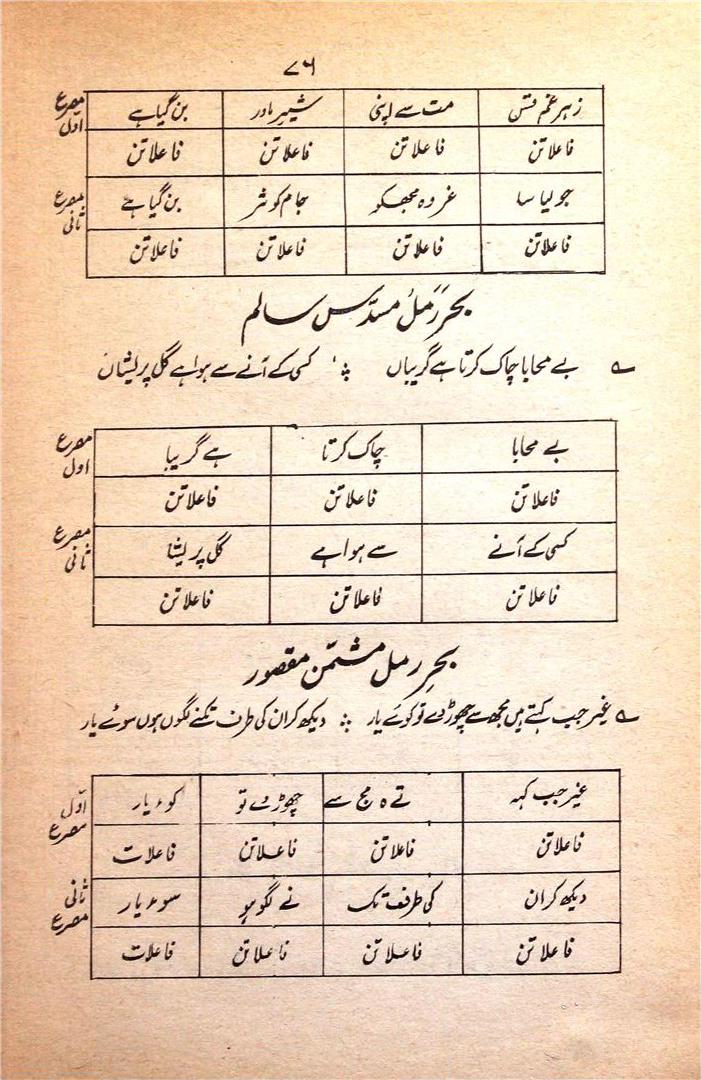 ۷۶
مصرع اول زہر غم فتس مت سے اپنی شیرِ مادر بن گیا ہے
فاعلاتن فاعلاتن فاعلاتن فاعلاتن
مصرع ثانی جو لیا سا غر وہ مجھکو جام کوثر بن گیا ہے
فاعلاتن فاعلاتن فاعلاتن فاعلاتن
بحرِ رَمَل مسدّس سالم
بے محابا چاک کرتا ہے گریباں ؞ کسی کے آنے سے ہوا ہے گل پریشاں
مصرع اول بے محابا چاک کرتا ہے گریبا
فاعلاتن فاعلاتن فاعلاتن
مصرع ثانی کسی کے آنے سے ہوا ہے گل پریشا
فاعلاتن فاعلاتن فاعلاتن
بحرِ رمل مثمّن مقصور
غیر جب کہتے ہیں مجھ سے چھوڑ دے تو کوئے یار ؞ دیکھ کر ان کی طرف تکنے لگوں ہوں سوئے یار
اوّل مصرع غیر جب کہہ تے ہ مج سے چھوڑ دے تو کوء یار
فاعلاتن فاعلاتن فاعلاتن فاعلات
ثانی مصرع دیکھ کر ان کی طرف تک نے لگو ہو سوء یار
فاعلاتن فاعلاتن فاعلاتن فاعلات